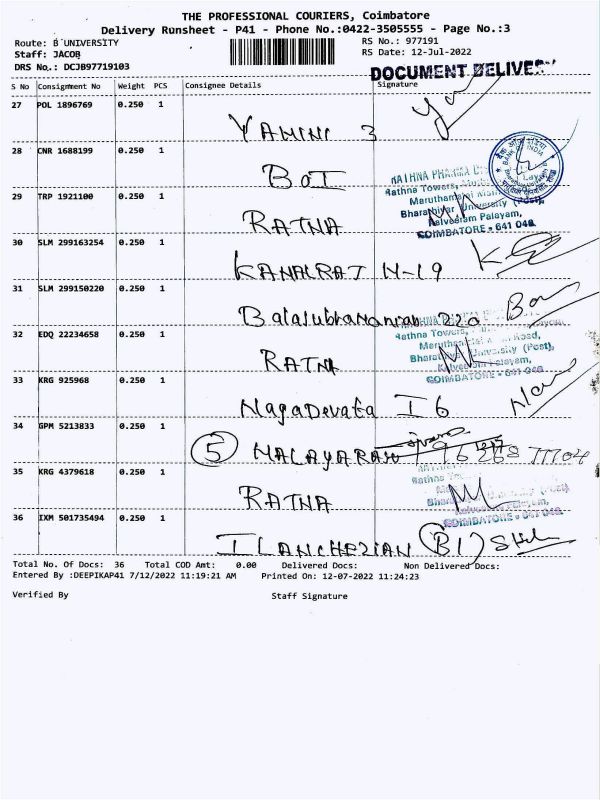 THE PROFESSIONAL COURIERS, Coimbatore
Delivery Runsheet - P41 - Phone No.:0422-3505555 - Page No.:3
Route: B UNIVERSITY
RS No.: 977191
Staff: JACOB
RS Date: 12-Jul-2022
DRS No.: DCJB97719103
DOCUMENT DELIVERY
S No Consignment No Weight PCS Consignee Details Signature
27 POL 1896769 0.250 1
YAMINI 3
28 CNR 1688199 0.250 1
BOI
BANK OF INDIA
29 TRP 1921100 0.250 1
RATNA
RATHNA PHARMA
Rathna Towers,
Bharathiyar University (Post),
Kalveeram Palayam,
COIMBATORE - 641 046
30 SLM 299163254 0.250 1
KANALRAT H-19
31 SLM 299150220 0.250 1
Balasubramanian 220
32 EDQ 22234658 0.250 1
RATNA
Rathna Towers,
Road,
University (Post),
Kalveeram Palayam,
COIMBATORE - 641 046
33 KRG 925968 0.250 1
NagaDevata I 6
34 GPM 5213833 0.250 1
5 MALAYARAM
35 KRG 4379618 0.250 1
RATNA
COIMBATORE - 641 046
36 IXM 501735494 0.250 1
ILANCHEZIAN (B1)
Total No. Of Docs: 36 Total COD Amt: 0.00 Delivered Docs: Non Delivered Docs:
Entered By :DEEPIKAP41 7/12/2022 11:19:21 AM Printed On: 12-07-2022 11:24:23
Verified By Staff Signature